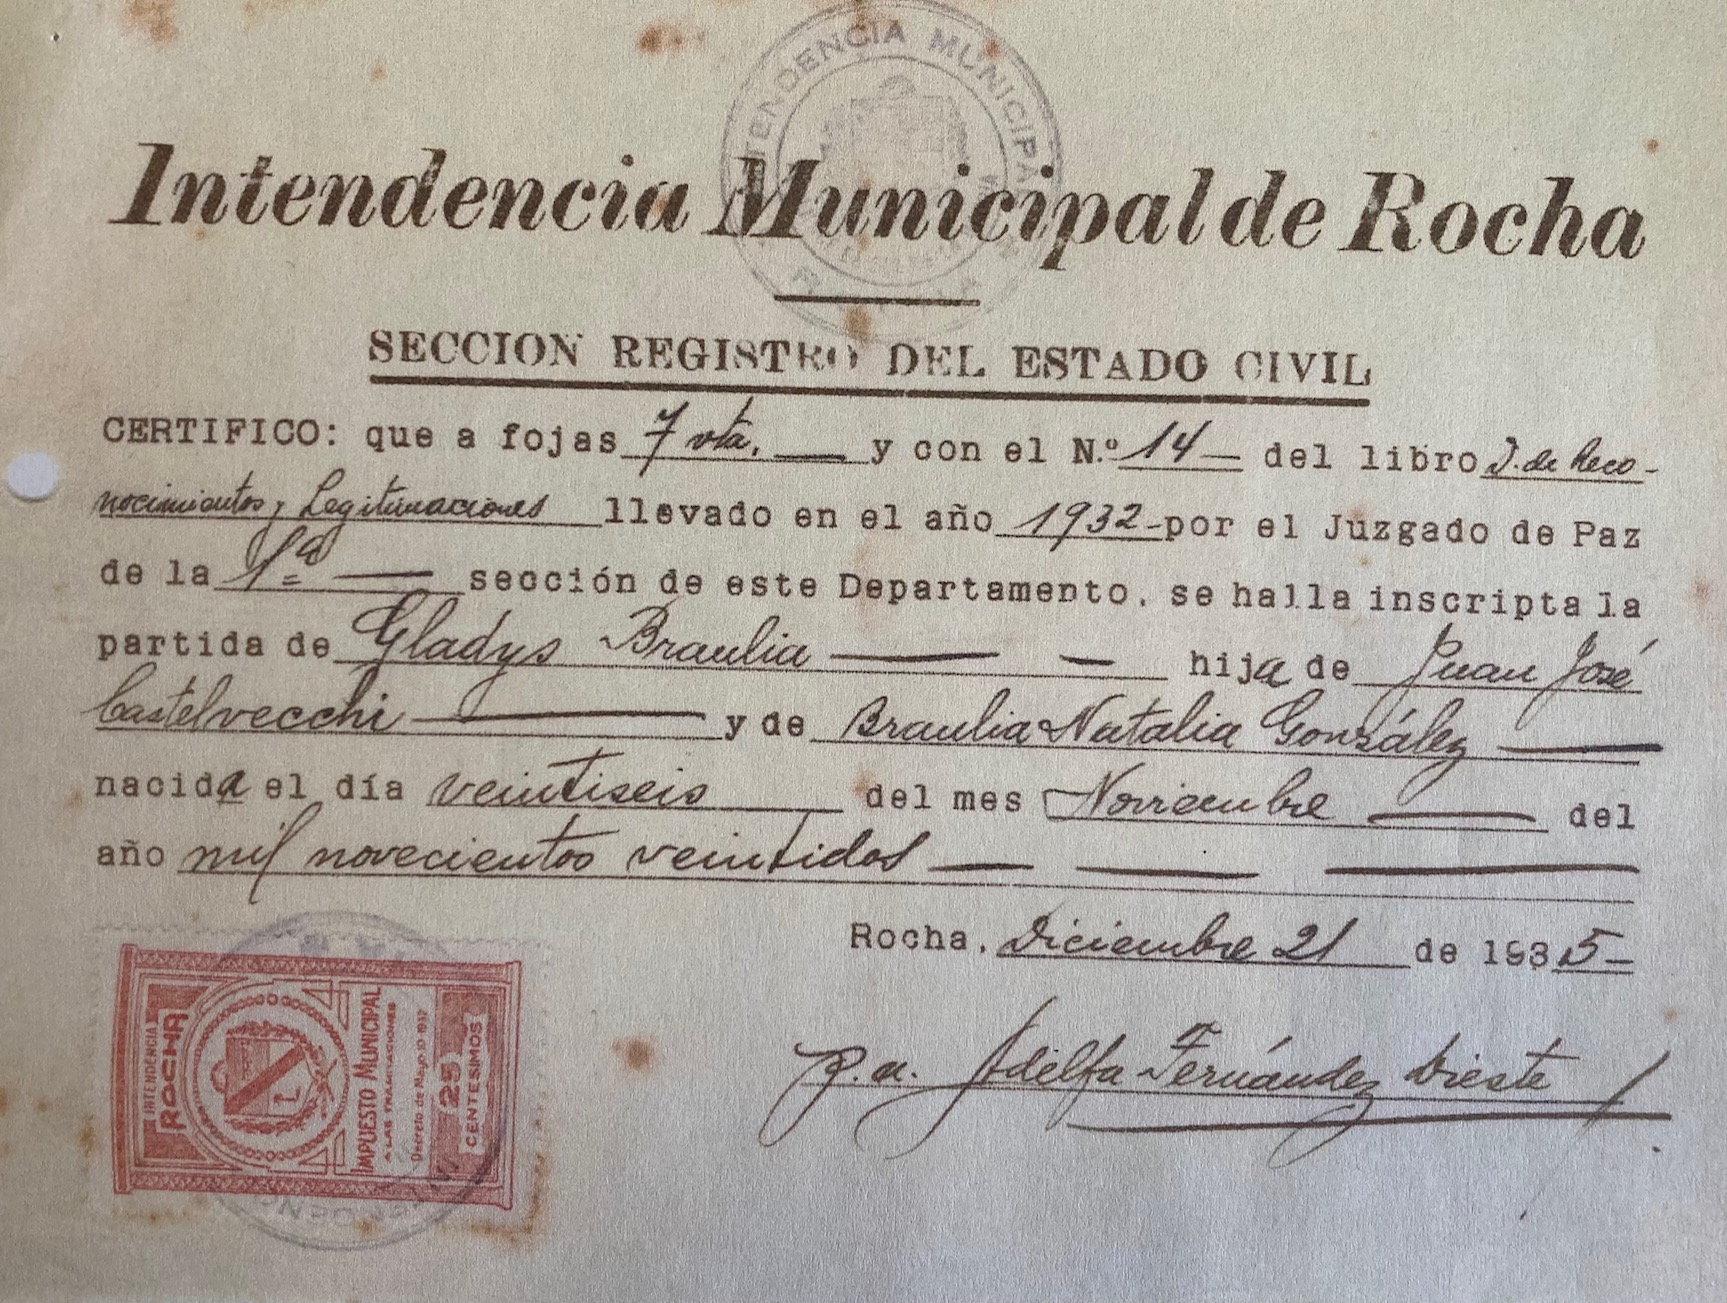 INTENDENCIA MUNICIPAL
Intendencia Municipal de Rocha
SECCION REGISTRO DEL ESTADO CIVIL
CERTIFICO: que a fojas 7 vta. y con el N.º 14 del libro D. de Reco-
nocimientos y Legitimaciones llevado en el año 1932 por el Juzgado de Paz
de la 1ª sección de este Departamento, se halla inscripta la
partida de Gladys Braulia hija de Juan José
Castelvecchi y de Braulia Natalia González
nacida el día veintiseis del mes Noviembre del
año mil novecientos veintidos
Rocha, Diciembre 21 de 1935
p.a. Adelfa Fernández Dieste
INTENDENCIA
ROCHA
IMPUESTO MUNICIPAL
A LAS TRANSACCIONES
Decreto de Mayo 10-1932
25
CENTESIMOS